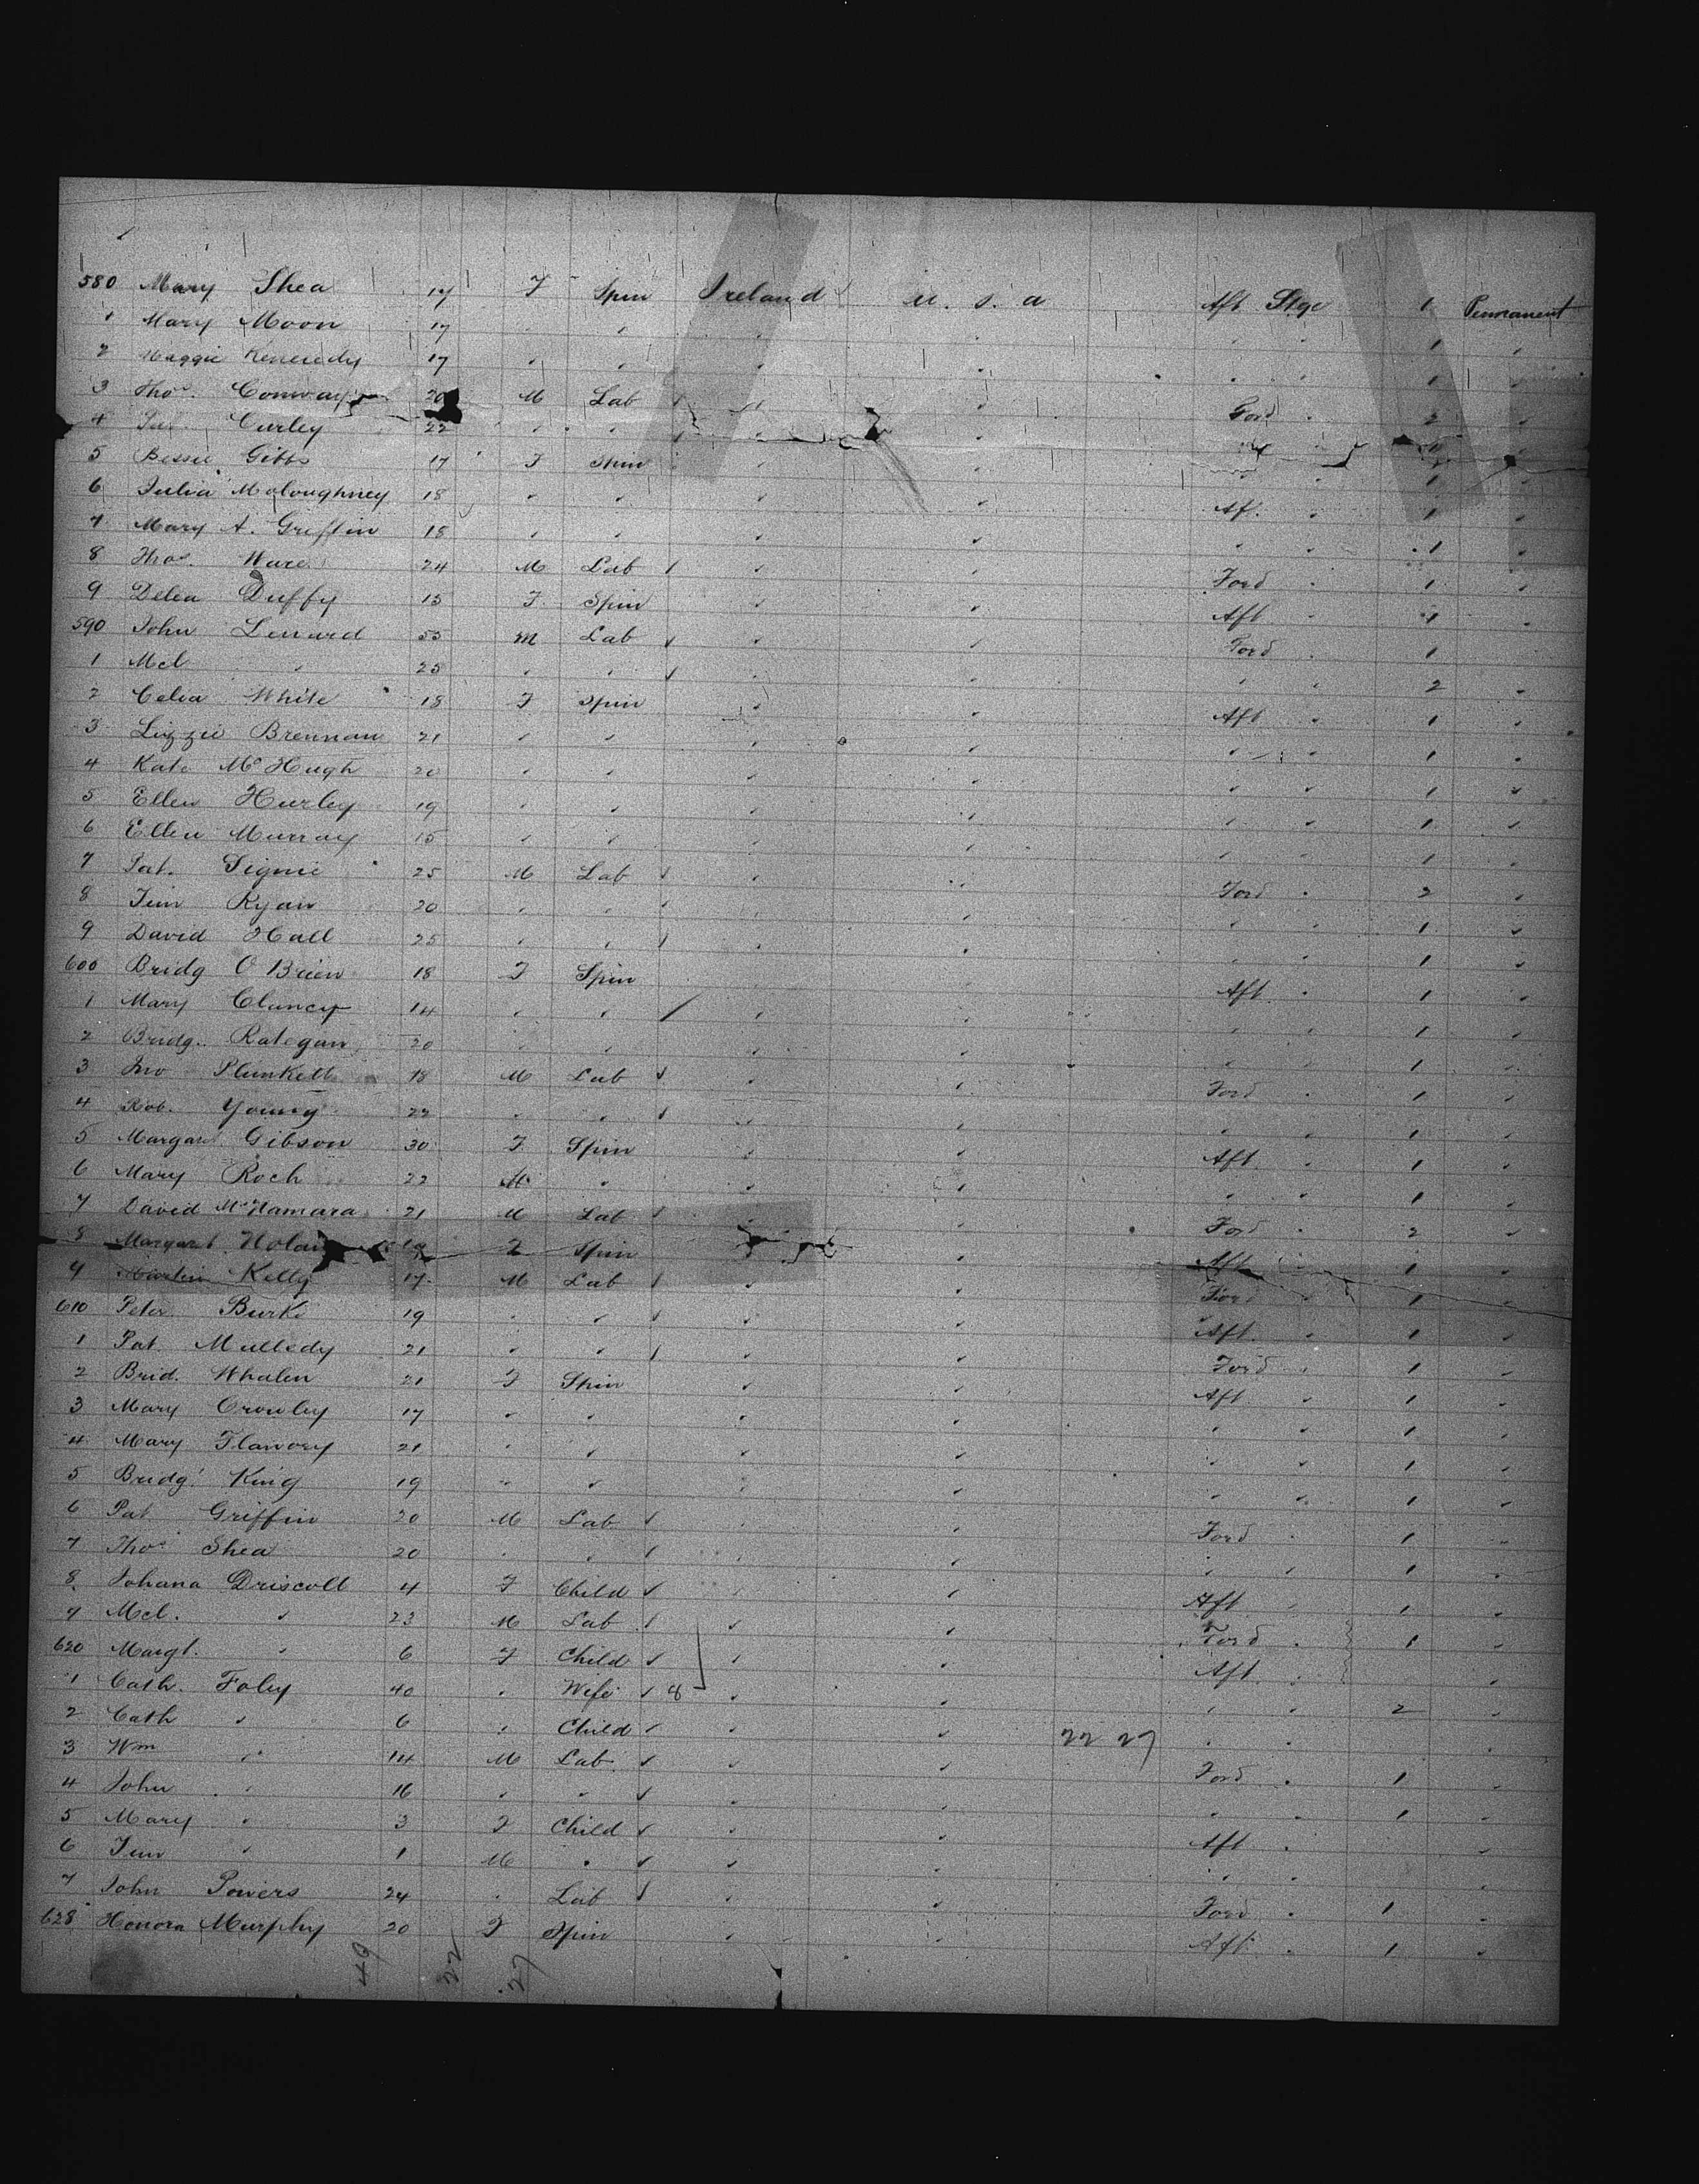 580 Mary Shea 17 F Spin Ireland U. S. A Aft Stge 1 Permanent
1 Mary Moon 17 " " " " " " 1 "
2 Maggie Kennedy 17 " " " " " " 1 "
3 Thos. Conway 20 M Lab " " Ford " 2 "
4 Curley 22 " " " "
5 Bessie Gibbs 17 F Spin " " " " 1
6 Julia Moloughney 18 " " " " Af. " 1 "
7 Mary A. Griffin 18 " " " " " " 1 "
8 Thos. Ware 24 M Lab " " Ford " 1 "
9 Delia Duffy 15 F Spin " " Aft " 1 "
590 John Lennard 55 M Lab " " Ford " 1
1 Mcl " 25 " " " " " " 2 "
2 Celia White 18 F Spin " " Aft " 1 "
3 Lizzie Brennan 21 " " " " " " 1 "
4 Kate McHugh 20 " " " " " " 1 "
5 Ellen Hurley 19 " " " " " " 1 "
6 Ellen Murray 15 " " " " " " 1 "
7 Pat. 25 M Lab " " Ford " 2 "
8 Jim Ryan 20 " " " " " " 1 "
9 David Hall 25 " " " " " " 1 "
600 Bridg O'Brien 18 F Spin " " Aft " 1 "
1 Mary Clancy 14 " " " " " " 1 "
2 Bridg. Rategan 20 " " " " " " 1 "
3 Jno Plunkett 18 M Lab " " Ford " 1 "
4 Rob. Young 22 " " " " " " 1 "
5 Margaret Gibson 30 F Spin " " Aft " 1 "
6 Mary Roch 22 M " " " " " 1 "
7 David McNamara 21 M Lab " " Ford " 2 "
8 Margaret Nolan F Spin " " Aft " 1 "
9 Martin Kelly 17 M Lab " " Ford " 1 "
610 Peter Burke 19 " " " " Aft. " 1 "
1 Pat Mulledy 21 " " " " Ford " 1 "
2 Brid. Whalen 21 F Spin " " Aft " 1 "
3 Mary Crowley 17 " " " " " " 1 "
4 Mary Flanory 21 " " " " " " 1 "
5 Bridg' King 19 " " " " " " 1 "
6 Pat Griffin 20 M Lab " " Ford " 1 "
7 Thos Shea 20 " " " " " " 1 "
8 Johana Driscoll 4 F Child " " Aft " 1 "
9 Mcl. " 23 M Lab " " Ford " 1 "
620 Margt. " 6 F Child " " Aft " "
1 Cath. Foley 40 " Wife 8 " " " " 2 "
2 Cath " 6 " Child " " 22 27 " " "
3 Wm " 14 M Lab " " Ford " 1 "
4 John " 16 " " " " " " 1 "
5 Mary " 3 F Child " " Aft " "
6 Jim " 1 M " " " " " "
7 John Powers 24 " Lab " " Ford " 1 "
628 Honora Murphy 20 F Spin " " Aft " 1 "
49 22 27